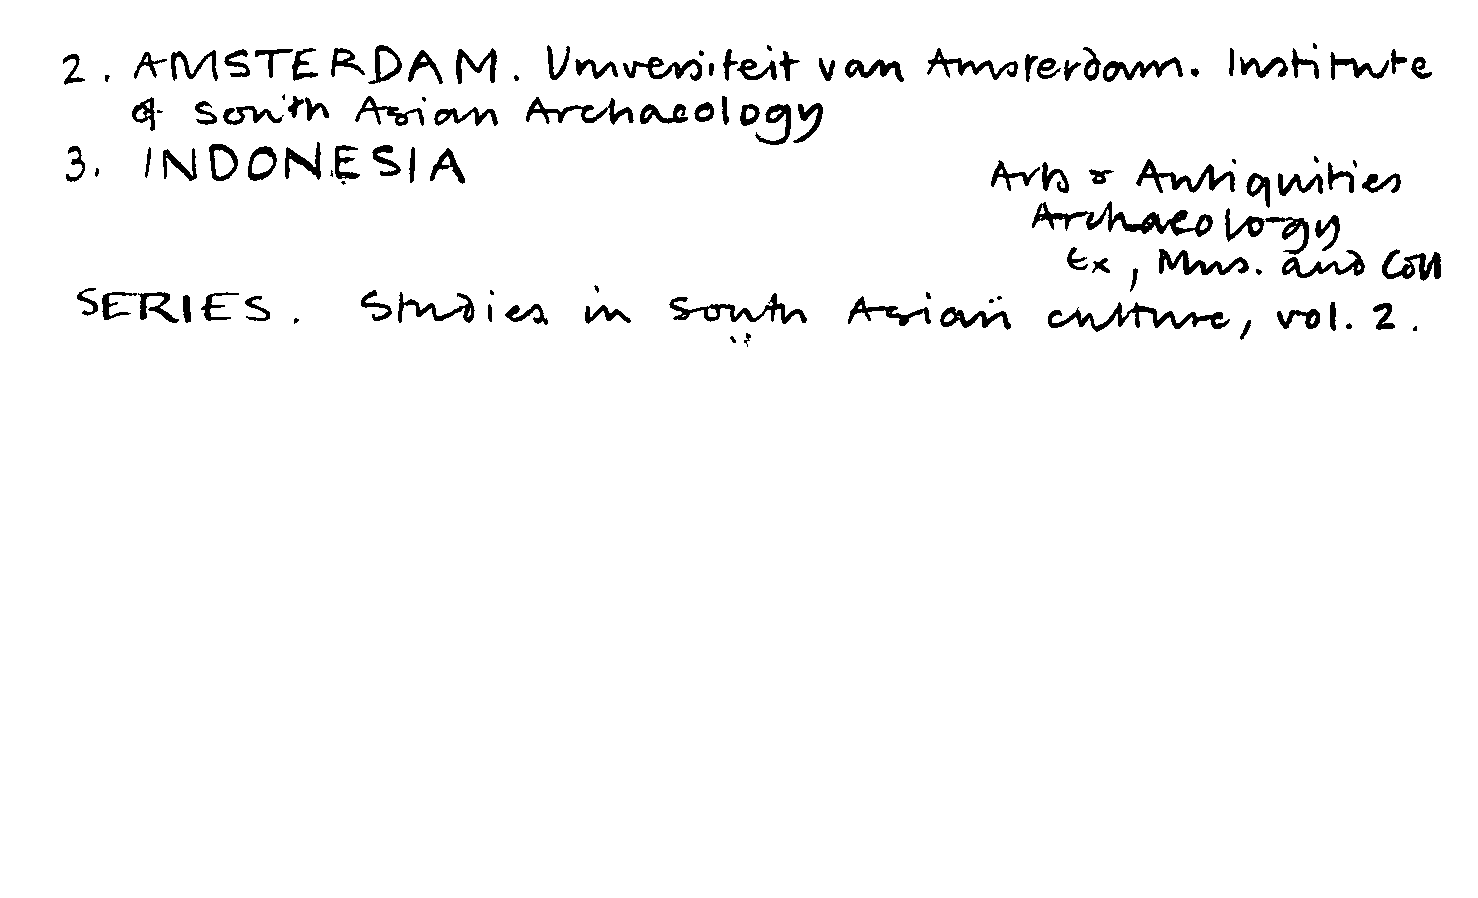 2. AMSTERDAM. Universiteit van Amsterdam. Institute
of South Asian Archaeology
3. INDONESIA
Arts & Antiquities
Archaeology
Ex, Mus. and Coll
SERIES. Studies in south Asian culture, vol. 2.